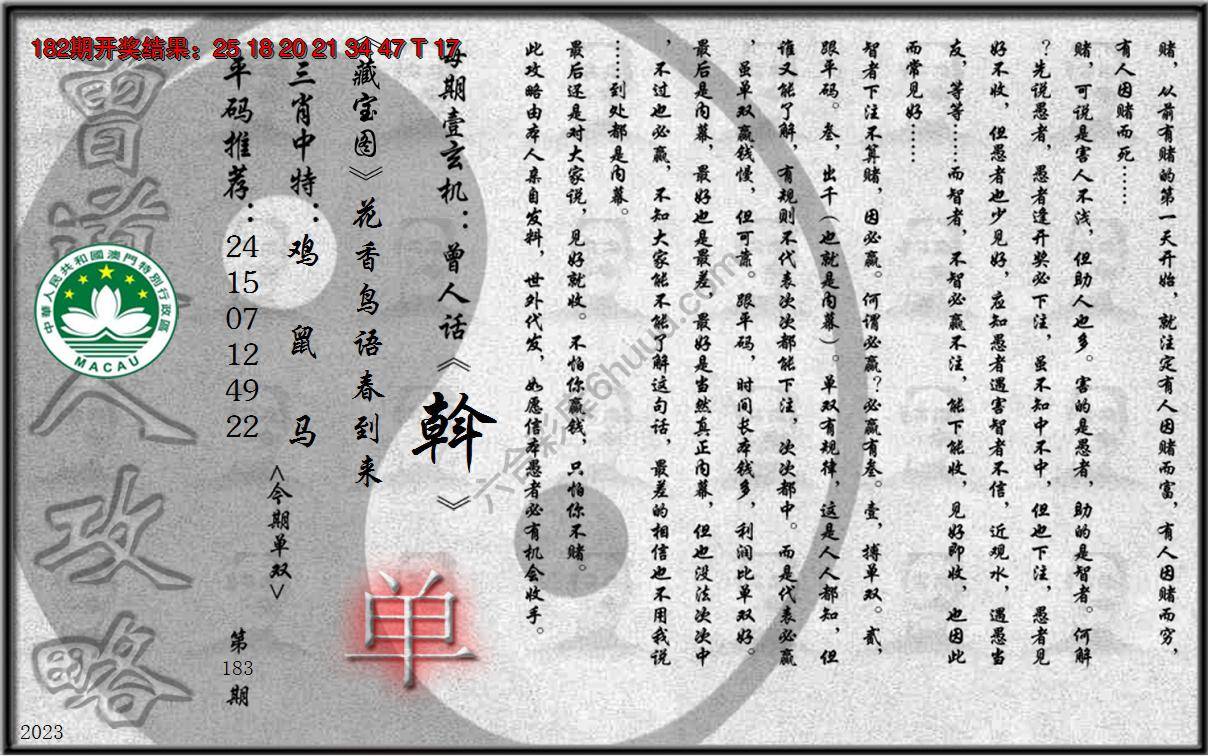 182期开奖结果：25 18 20 21 34 47 T 17
赌，从前有赌的第一天开始，就注定有人因赌而富，有人因赌而穷，
有人因赌而死……
赌，可说是害人不浅，但助人也多。害的是愚者，助的是智者。何解
？先说愚者，愚者逢开奖必下注，虽不知中不中，但也下注，愚者见
好不收，但愚者也少见好，应知愚者遇害智者不信，近观水，遇愚当
友，等等……而智者，不智必赢不注，能下能收，见好即收，也因此
而常见好……
智者下注不算赌，因必赢。何谓必赢？必赢有叁。壹，搏单双。贰，
跟平码。叁，出千（也就是内幕）。单双有规律，这是人人都知，但
谁又能了解，有规则不代表次次都能下注，次次都中。而是代表必赢
，虽单双赢钱慢，但可靠。跟平码，时间长本钱多，利润比单双好。
最后是内幕，最好也是最差，最好是当然真正内幕，但也没法次次中
，不过也必赢，不知大家能不能了解这句话，最差的相信也不用我说
……到处都是内幕。
最后还是对大家说，见好就收。不怕你赢钱，只怕你不赌。
此攻略由本人亲自发料，世外代发，如愿信本愚者必有机会收手。
每期壹玄机：曾人话《斡》
《藏宝图》花香鸟语春到来
三肖中特：鸡 鼠 马
<今期单双>
单
平码推荐：24 15 07 12 49 22
第183期
曾道人攻略
中華人民共和國澳門特別行政區
MACAU
六合彩图库6huuu.com
2023